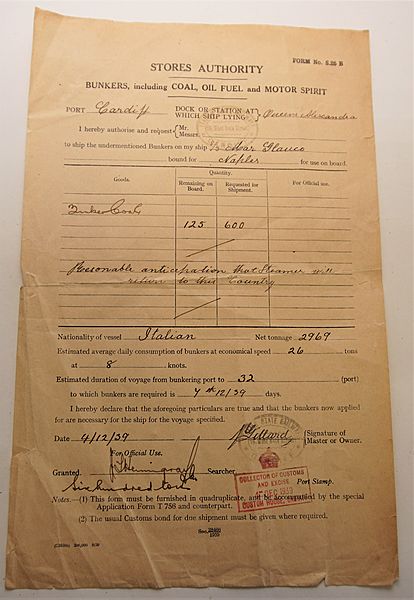 FORM No. S.25 B
STORES AUTHORITY
BUNKERS, including COAL, OIL FUEL and MOTOR SPIRIT
PORT Cardiff DOCK OR STATION AT WHICH SHIP LYING} Queen Alexandra
I hereby authorise and request {Mr. Messrs.
to ship the undermentioned Bunkers on my ship S/S Mar Glauco
bound for Naples for use on board.
Goods. Quantity. For Official use.
Remaining on Board. Requested for Shipment.
Bunker Coals
125 600
Resonable anticipation that Steamer will
return to this Country
Nationality of vessel Italian Net tonnage 2969
Estimated average daily consumption of bunkers at economical speed 26 tons
at 8 knots.
Estimated duration of voyage from bunkering port to 32 (port)
to which bunkers are required is 4/12/39 days.
I hereby declare that the aforegoing particulars are true and that the bunkers now applied
for are necessary for the ship for the voyage specified.
Date 4/12/39 {Signature of Master or Owner.
For Official Use.
Granted. Searcher. Port Stamp.
six hundred tons
COLLECTOR OF CUSTOMS
AND EXCISE
DEC 1939
CUSTOM HOUSE
Notes.—(1) This form must be furnished in quadruplicate, and be accompanied by the special
Application Form T 756 and counterpart.
(2) The usual Customs bond for due shipment must be given where required.
1939